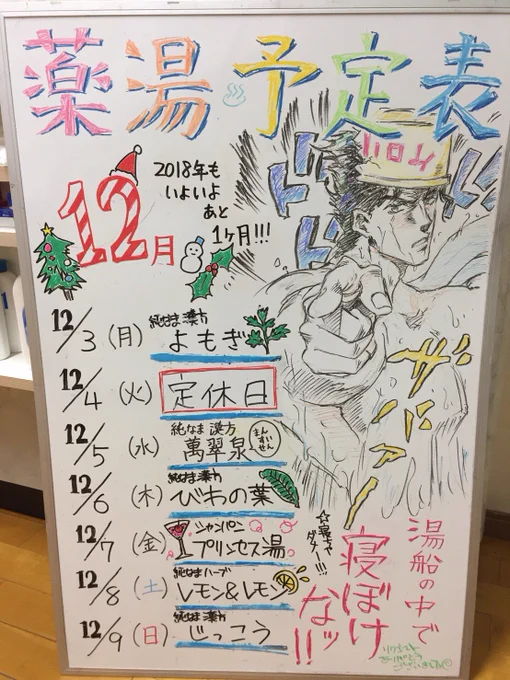 薬湯予定表
ケロリン
ドドドド
12月
2018年も
いよいよ
あと
1ヶ月!!!
12/3(月)
純なま漢方
よもぎ
12/4(火)
定休日
12/5(水)
純なま 漢方
萬翠泉
まんすいせん
12/6(木)
純なま漢方
びわの葉
12/7(金)
シャンパン
プリンセス湯
12/8(土)
純なまハーブ
レモン&レモン
12/9(日)
純なま漢方
じっこう
ザバァー
湯船の中で
寝ぼけ
なッ!!
☆寝ちゃ
ダメー!!!
リクエスト
ありがとう
ございました